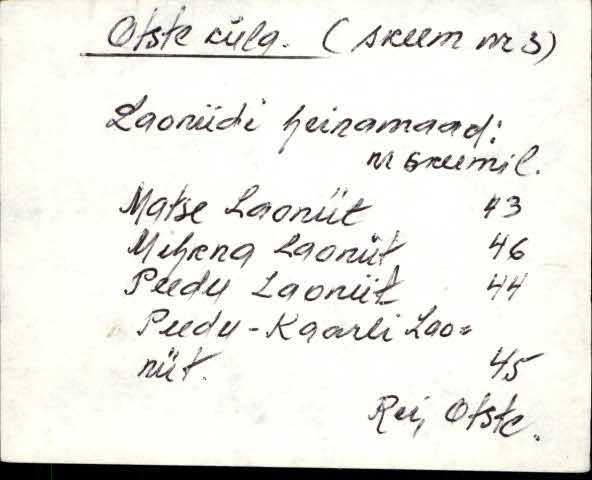 Otste küla. (skeem nr 3)
Laoniidi heinamaad:
nr skeemil.
Matse Laoniit 43
Mihkna Laoniit 46
Peedu Laoniit 44
Peedu-Kaarli Lao=
niit. 45
Rei, Otste.